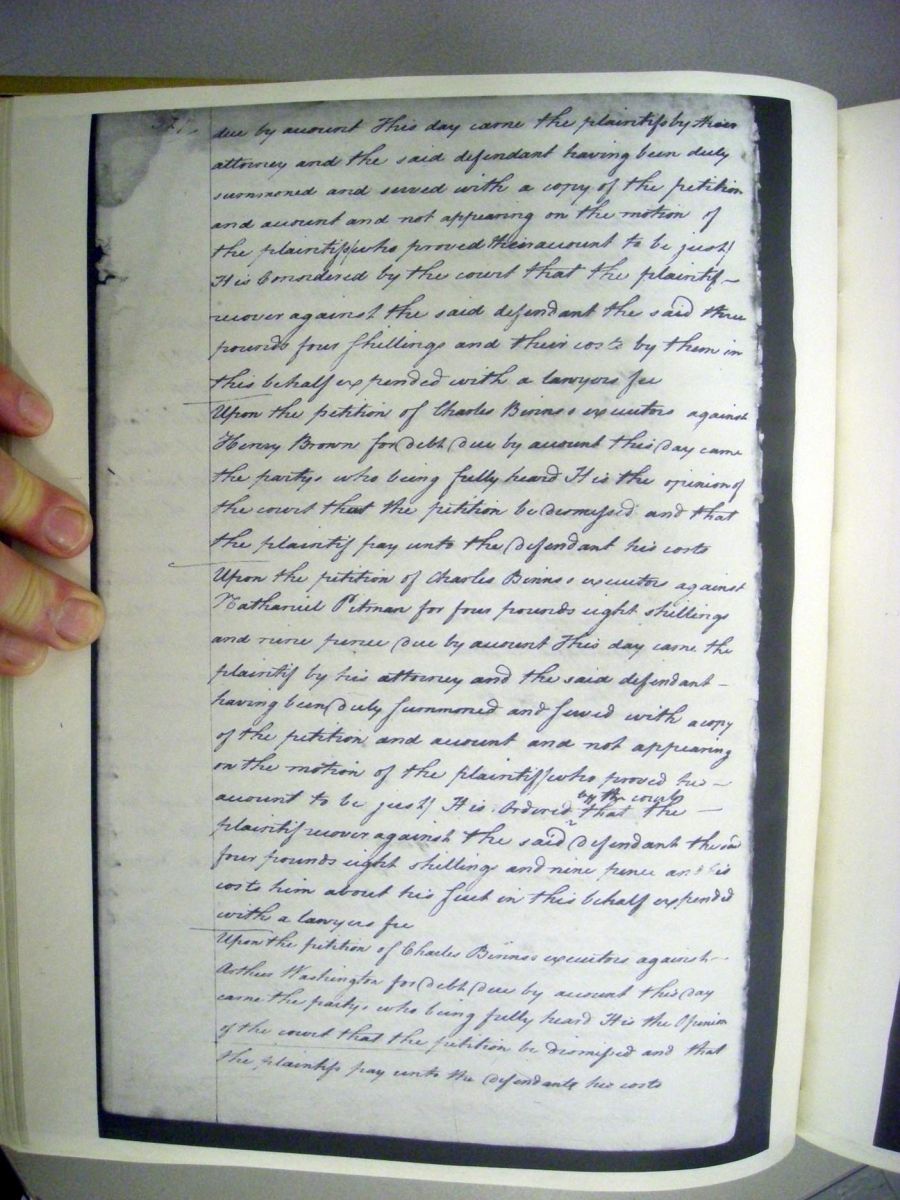 due by account This day came the plaintifs by their
attorney and the said defendant having been duly
summoned and served with a copy of the petition
and account and not appearing on the motion of
the plaintifs (who proved their account to be just)
It is Considered by the court that the plaintif
recover against the said defendant the said three
pounds four shillings and their costs by them in
this behalf expended with a lawyers fee
Upon the petition of Charles Binns's executors against
Henry Brown for debt due by account this day came
the partys who being fully heard It is the opinion of
the court that the petition be dismissed and that
the plaintif pay unto the defendant his costs
Upon the petition of Charles Binns's executors against
Nathaniel Pitman for four pounds eight shillings
and nine pence due by account This day came the
plaintif by his attorney and the said defendant
having been duly summoned and served with a copy
of the petition and account and not appearing
on the motion of the plaintiff (who proved his
by the court
account to be just) It is Ordered that the
plaintif recover against the said defendant the said
four pounds eight shillings and nine pence and his
costs him about his suit in this behalf expended
with a lawyers fee
Upon the petition of Charles Binns's executors against
Arthur Washington for debt due by account this day
came the partys who being fully heard It is the Opinion
of the court that the petition be dismissed and that
the plaintifs pay unto the defendants his costs